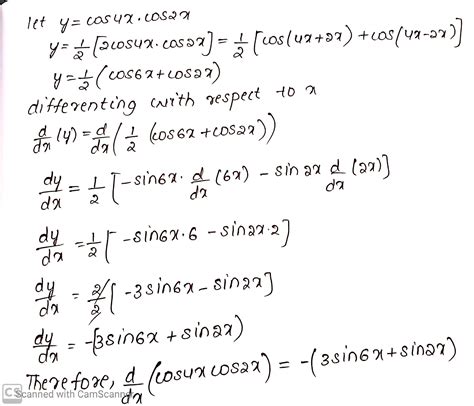 let y = cos4x.cos2x
y = 1/2 [2cos4x.cos2x] = 1/2 [cos(4x+2x) + cos(4x-2x)]
y = 1/2 (cos6x + cos2x)
differenting with respect to x
d/dx (y) = d/dx (1/2 (cos6x + cos2x))
dy/dx = 1/2 [-sin6x. d/dx (6x) - sin2x d/dx (2x)]
dy/dx = 1/2 [-sin6x.6 - sin2x.2]
dy/dx = 2/2 [-3sin6x - sin2x]
dy/dx = -(3sin6x + sin2x)
Therefore, d/dx (cos4x cos2x) = -(3sin6x + sin2x)
CS Scanned with CamScanner